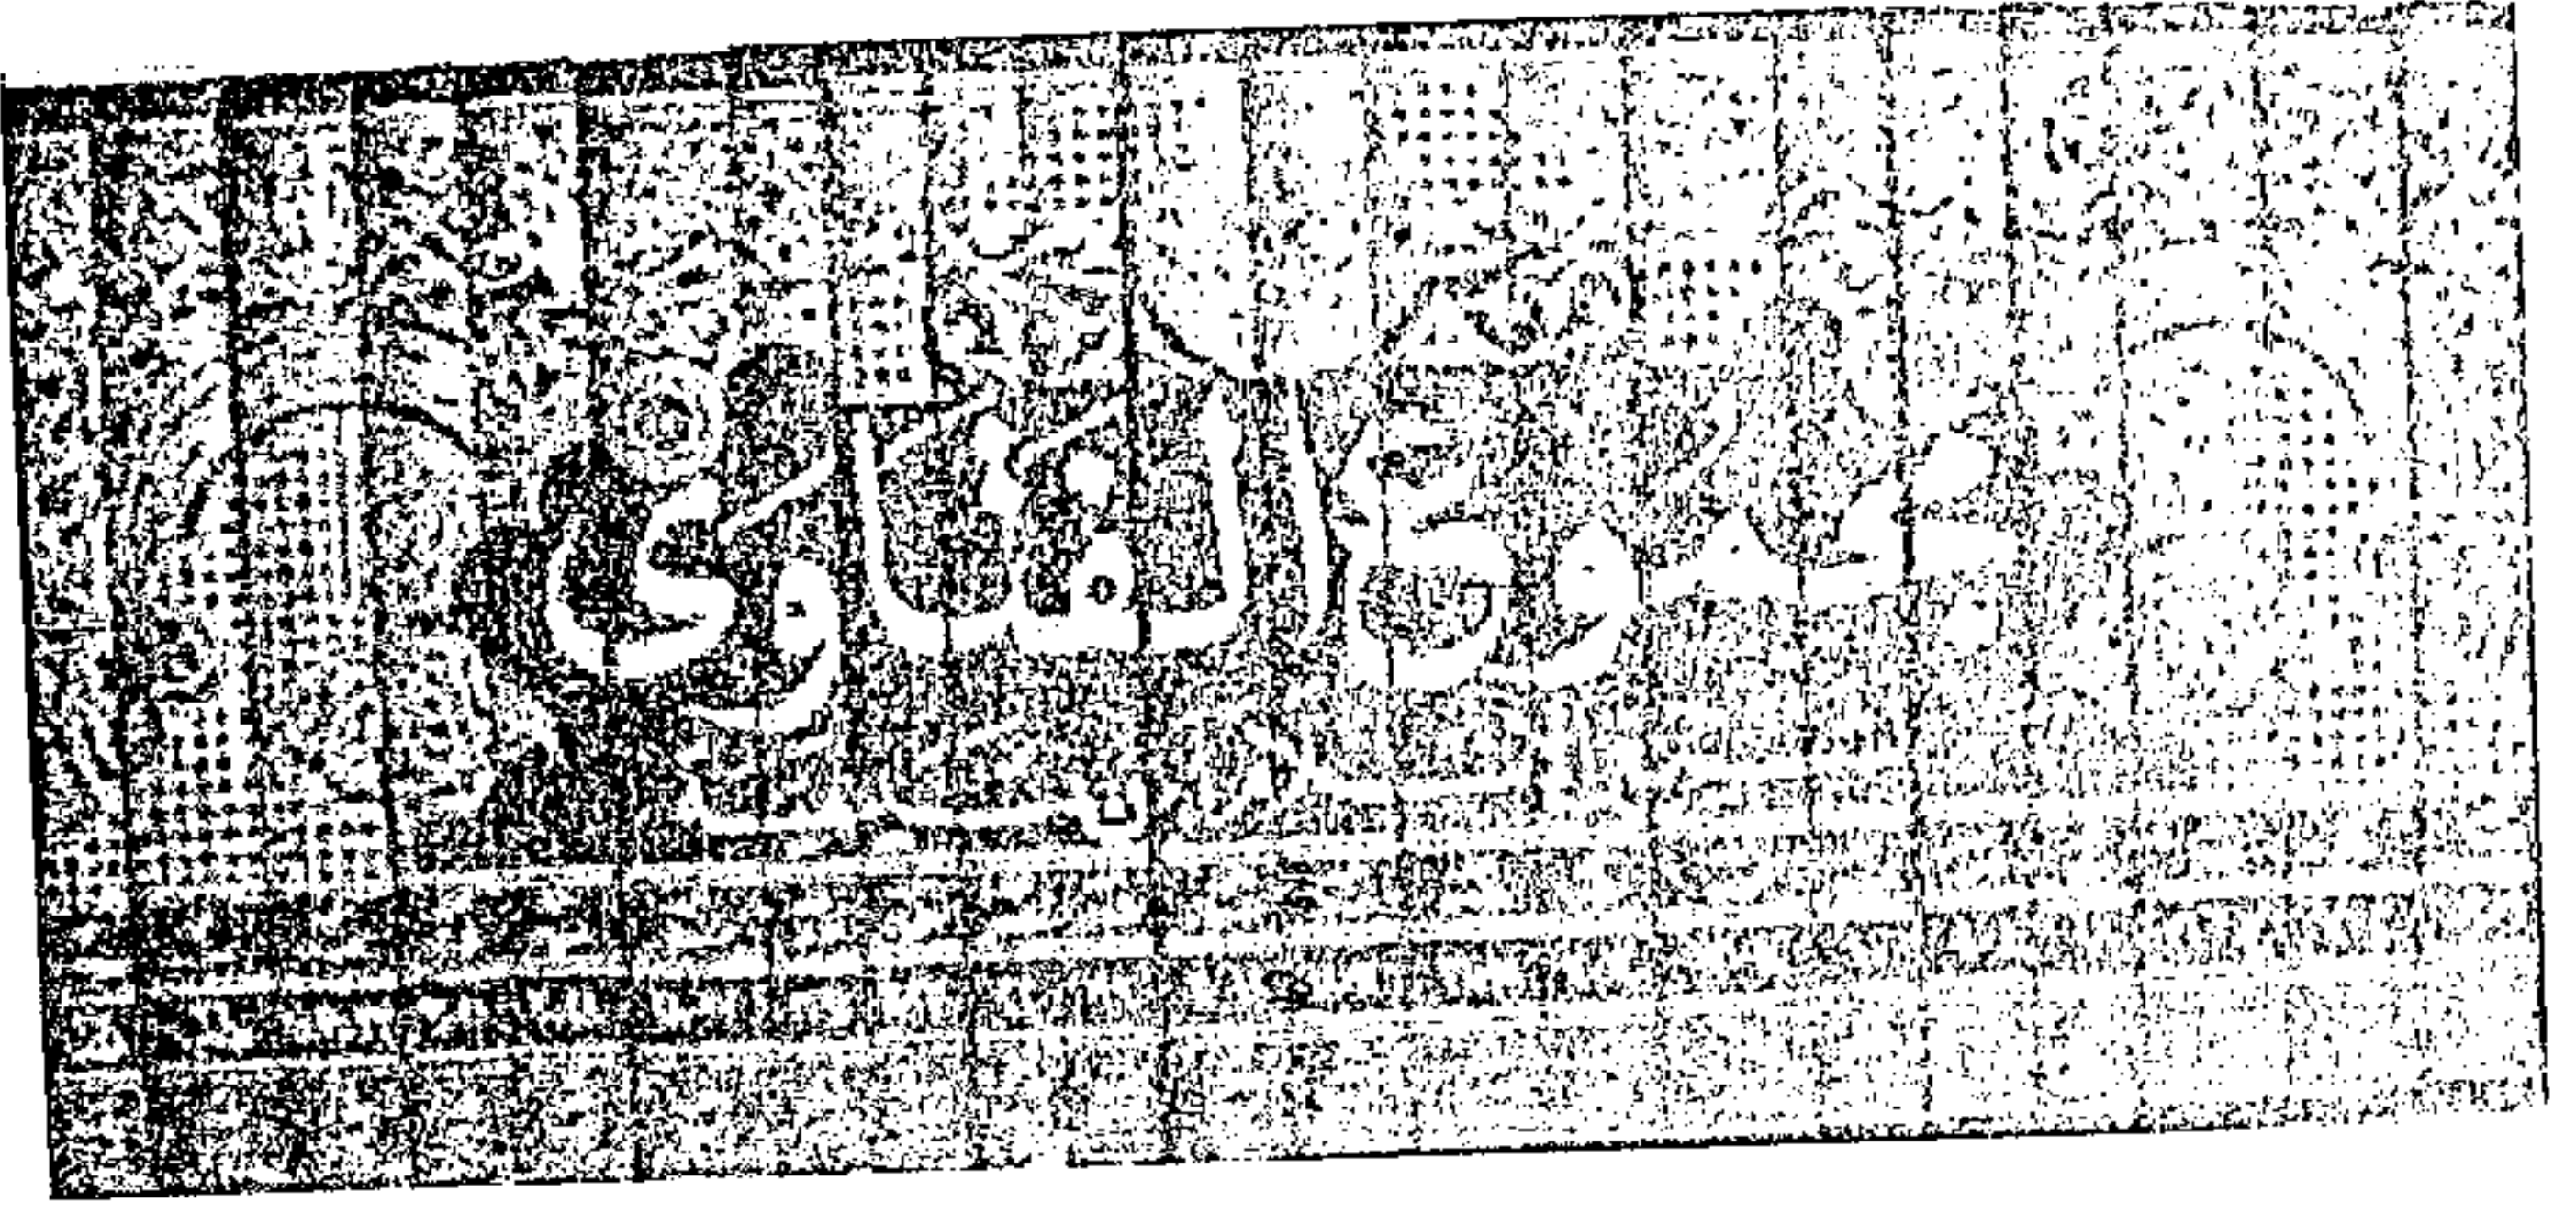 مجموع الفتاوى